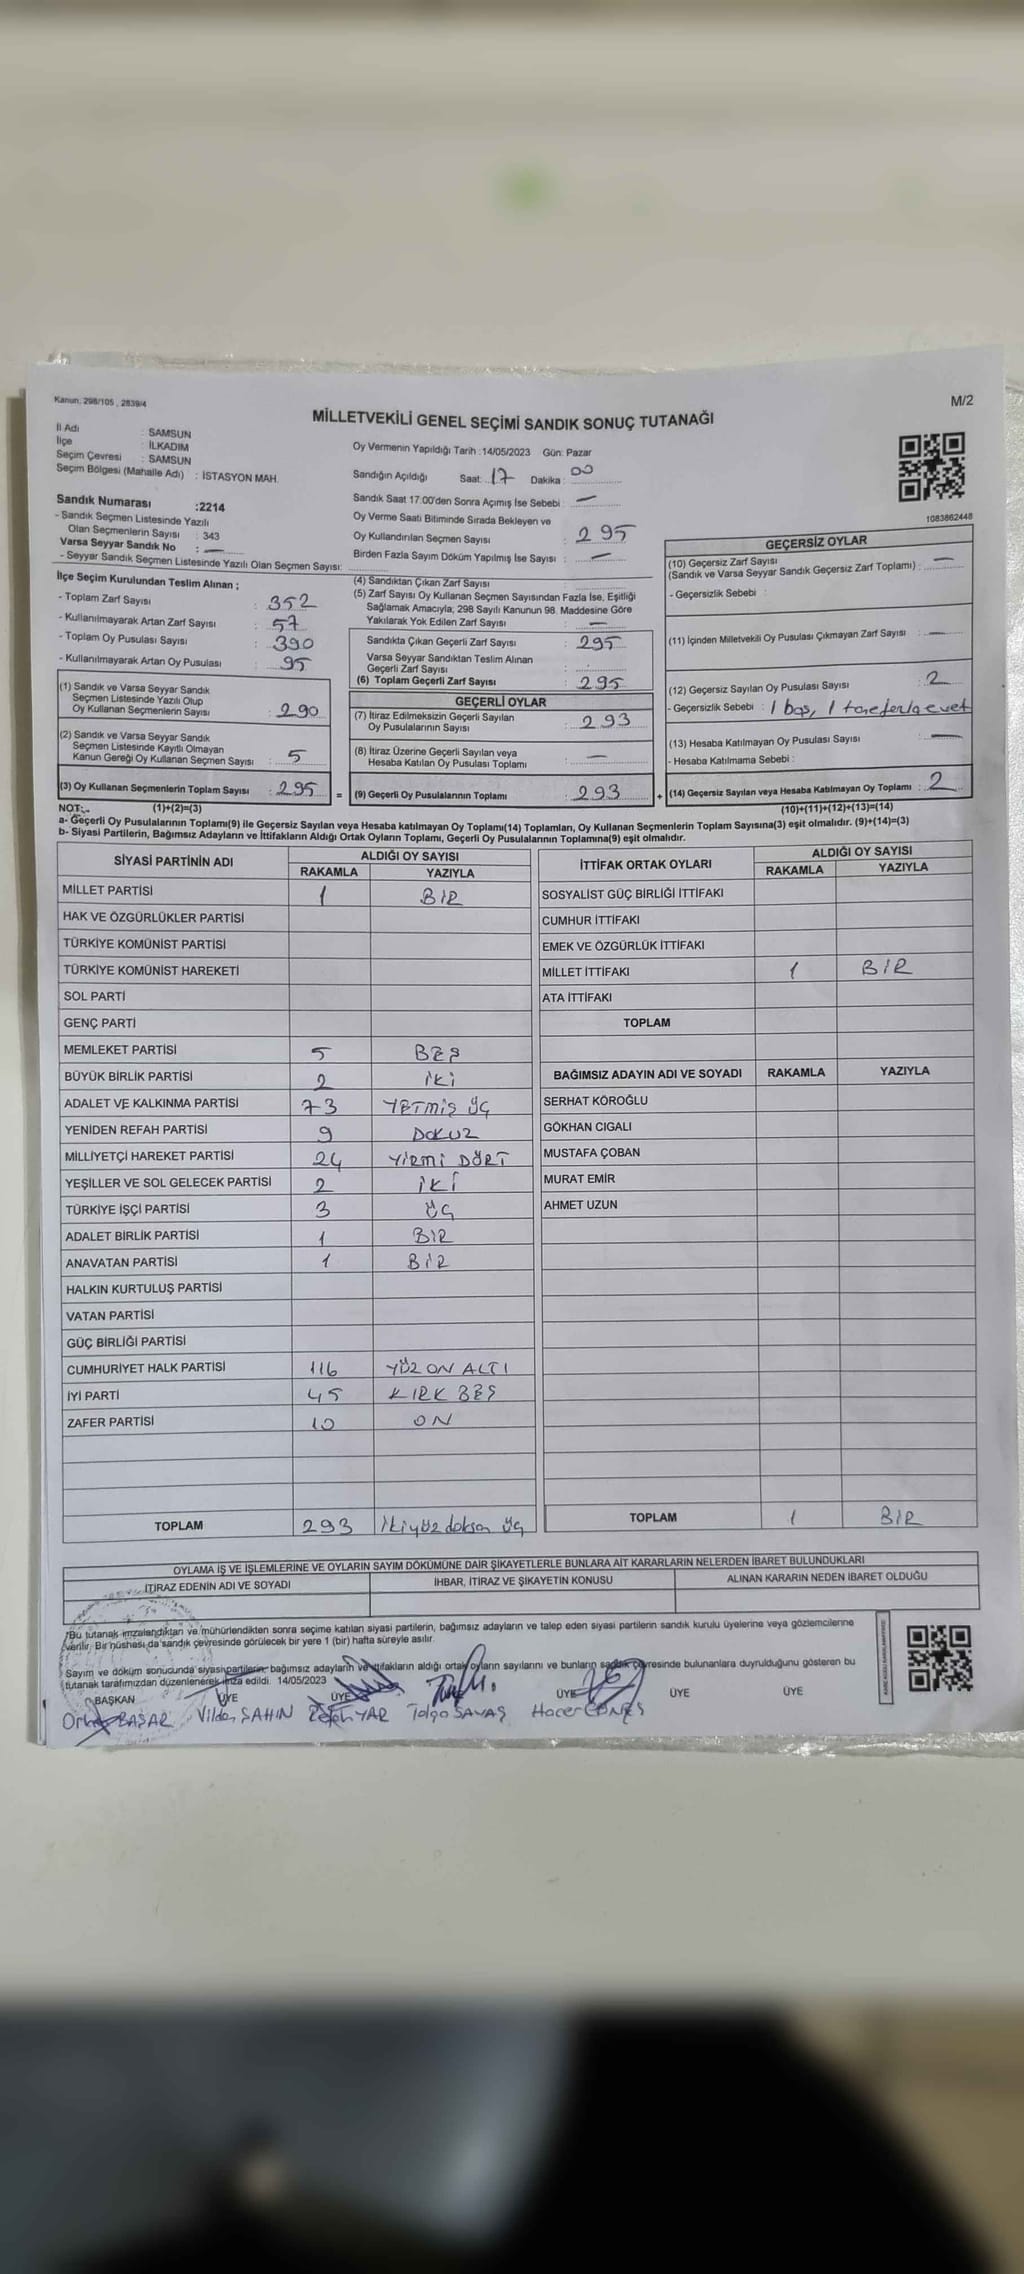 Kanun: 298/105 , 2839/4
M/2
MİLLETVEKİLİ GENEL SEÇİMİ SANDIK SONUÇ TUTANAĞI
İl Adı : SAMSUN
İlçe : İLKADIM
Seçim Çevresi : SAMSUN
Seçim Bölgesi (Mahalle Adı) : İSTASYON MAH.
Sandık Numarası :2214
- Sandık Seçmen Listesinde Yazılı
Olan Seçmenlerin Sayısı : 343
Varsa Seyyar Sandık No : —
- Seyyar Sandık Seçmen Listesinde Yazılı Olan Seçmen Sayısı:
Oy Vermenin Yapıldığı Tarih :14/05/2023 Gün: Pazar
Sandığın Açıldığı Saat: 17 Dakika : 00
Sandık Saat 17.00'den Sonra Açımış İse Sebebi : —
Oy Verme Saati Bitiminde Sırada Bekleyen ve
Oy Kullandırılan Seçmen Sayısı : 295
Birden Fazla Sayım Döküm Yapılmış İse Sayısı : —
1083862448
İlçe Seçim Kurulundan Teslim Alınan ;
- Toplam Zarf Sayısı : 352
- Kullanılmayarak Artan Zarf Sayısı : 57
- Toplam Oy Pusulası Sayısı : 390
- Kullanılmayarak Artan Oy Pusulası : 95
(1) Sandık ve Varsa Seyyar Sandık
Seçmen Listesinde Yazılı Olup
Oy Kullanan Seçmenlerin Sayısı : 290
(2) Sandık ve Varsa Seyyar Sandık
Seçmen Listesinde Kayıtlı Olmayan
Kanun Gereği Oy Kullanan Seçmen Sayısı : 5
(3) Oy Kullanan Seçmenlerin Toplam Sayısı : 295 =
(4) Sandıktan Çıkan Zarf Sayısı
(5) Zarf Sayısı Oy Kullanan Seçmen Sayısından Fazla İse, Eşitliği
Sağlamak Amacıyla, 298 Sayılı Kanunun 98. Maddesine Göre
Yakılarak Yok Edilen Zarf Sayısı : —
Sandıkta Çıkan Geçerli Zarf Sayısı : 295
Varsa Seyyar Sandıktan Teslim Alınan
Geçerli Zarf Sayısı :
(6) Toplam Geçerli Zarf Sayısı : 295
GEÇERLİ OYLAR
(7) İtiraz Edilmeksizin Geçerli Sayılan
Oy Pusulalarının Sayısı : 293
(8) İtiraz Üzerine Geçerli Sayılan veya
Hesaba Katılan Oy Pusulası Toplamı : —
(9) Geçerli Oy Pusulalarının Toplamı : 293 +
GEÇERSİZ OYLAR
(10) Geçersiz Zarf Sayısı
(Sandık ve Varsa Seyyar Sandık Geçersiz Zarf Toplamı) : —
- Geçersizlik Sebebi :
(11) İçinden Milletvekili Oy Pusulası Çıkmayan Zarf Sayısı : —
(12) Geçersiz Sayılan Oy Pusulası Sayısı : 2
- Geçersizlik Sebebi : 1 boş, 1 evet
(13) Hesaba Katılmayan Oy Pusulası Sayısı : —
- Hesaba Katılmama Sebebi :
(14) Geçersiz Sayılan veya Hesaba Katılmayan Oy Toplamı : 2
NOT:. (1)+(2)=(3) (10)+(11)+(12)+(13)=(14)
a- Geçerli Oy Pusulalarının Toplamı(9) ile Geçersiz Sayılan veya Hesaba katılmayan Oy Toplamı(14) Toplamları, Oy Kullanan Seçmenlerin Toplam Sayısına(3) eşit olmalıdır. (9)+(14)=(3)
b- Siyasi Partilerin, Bağımsız Adayların ve İttifakların Aldığı Ortak Oyların Toplamı, Geçerli Oy Pusulalarının Toplamına(9) eşit olmalıdır.
SİYASİ PARTİNİN ADI ALDIĞI OY SAYISI
RAKAMLA YAZIYLA
MİLLET PARTİSİ 1 BİR
HAK VE ÖZGÜRLÜKLER PARTİSİ
TÜRKİYE KOMÜNİST PARTİSİ
TÜRKİYE KOMÜNİST HAREKETİ
SOL PARTİ
GENÇ PARTİ
MEMLEKET PARTİSİ 5 BEŞ
BÜYÜK BİRLİK PARTİSİ 2 İKİ
ADALET VE KALKINMA PARTİSİ 73 YETMİŞ ÜÇ
YENİDEN REFAH PARTİSİ 9 DOKUZ
MİLLİYETÇİ HAREKET PARTİSİ 24 YİRMİ DÖRT
YEŞİLLER VE SOL GELECEK PARTİSİ 2 İKİ
TÜRKİYE İŞÇİ PARTİSİ 3 ÜÇ
ADALET BİRLİK PARTİSİ 1 BİR
ANAVATAN PARTİSİ 1 BİR
HALKIN KURTULUŞ PARTİSİ
VATAN PARTİSİ
GÜÇ BİRLİĞİ PARTİSİ
CUMHURİYET HALK PARTİSİ 116 YÜZ ON ALTI
İYİ PARTİ 45 KIRK BEŞ
ZAFER PARTİSİ 10 ON
TOPLAM 293 İkiyüz doksan üç
İTTİFAK ORTAK OYLARI ALDIĞI OY SAYISI
RAKAMLA YAZIYLA
SOSYALİST GÜÇ BİRLİĞİ İTTİFAKI
CUMHUR İTTİFAKI
EMEK VE ÖZGÜRLÜK İTTİFAKI
MİLLET İTTİFAKI 1 BİR
ATA İTTİFAKI
TOPLAM
BAĞIMSIZ ADAYIN ADI VE SOYADI RAKAMLA YAZIYLA
SERHAT KÖROĞLU
GÖKHAN CIGALI
MUSTAFA ÇOBAN
MURAT EMİR
AHMET UZUN
TOPLAM 1 BİR
OYLAMA İŞ VE İŞLEMLERİNE VE OYLARIN SAYIM DÖKÜMÜNE DAİR ŞİKAYETLERLE BUNLARA AİT KARARLARIN NELERDEN İBARET BULUNDUKLARI
İTİRAZ EDENİN ADI VE SOYADI İHBAR, İTİRAZ VE ŞİKAYETİN KONUSU ALINAN KARARIN NEDEN İBARET OLDUĞU
*Bu tutanak imzalandıktan ve mühürlendikten sonra seçime katılan siyasi partilerin, bağımsız adayların ve talep eden siyasi partilerin sandık kurulu üyelerine veya gözlemcilerine
verilir. Bir nüshası da sandık çevresinde görülecek bir yere 1 (bir) hafta süreyle asılır.
Sayım ve döküm sonucunda siyasi partilerin, bağımsız adayların ve ittifakların aldığı ortak oyların sayılarını ve bunların sandık çevresinde bulunanlara duyrulduğunu gösteren bu
tutanak tarafımızdan düzenlenerek imza edildi. 14/05/2023
BAŞKAN ÜYE ÜYE ÜYE ÜYE ÜYE
BAŞAR Vildan ŞAHİN YAR Tolga SAVAŞ Hacer